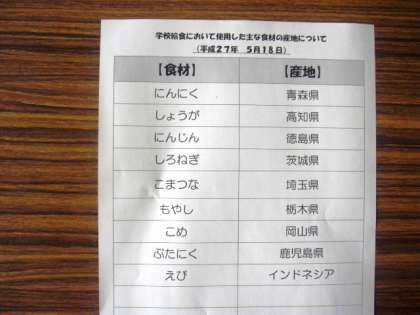 学校給食において使用した主な食材の産地について
（平成27年　5月18日）
【食材】　【産地】
にんにく　青森県
しょうが　高知県
にんじん　徳島県
しろねぎ　茨城県
こまつな　埼玉県
もやし　栃木県
こめ　岡山県
ぶたにく　鹿児島県
えび　インドネシア